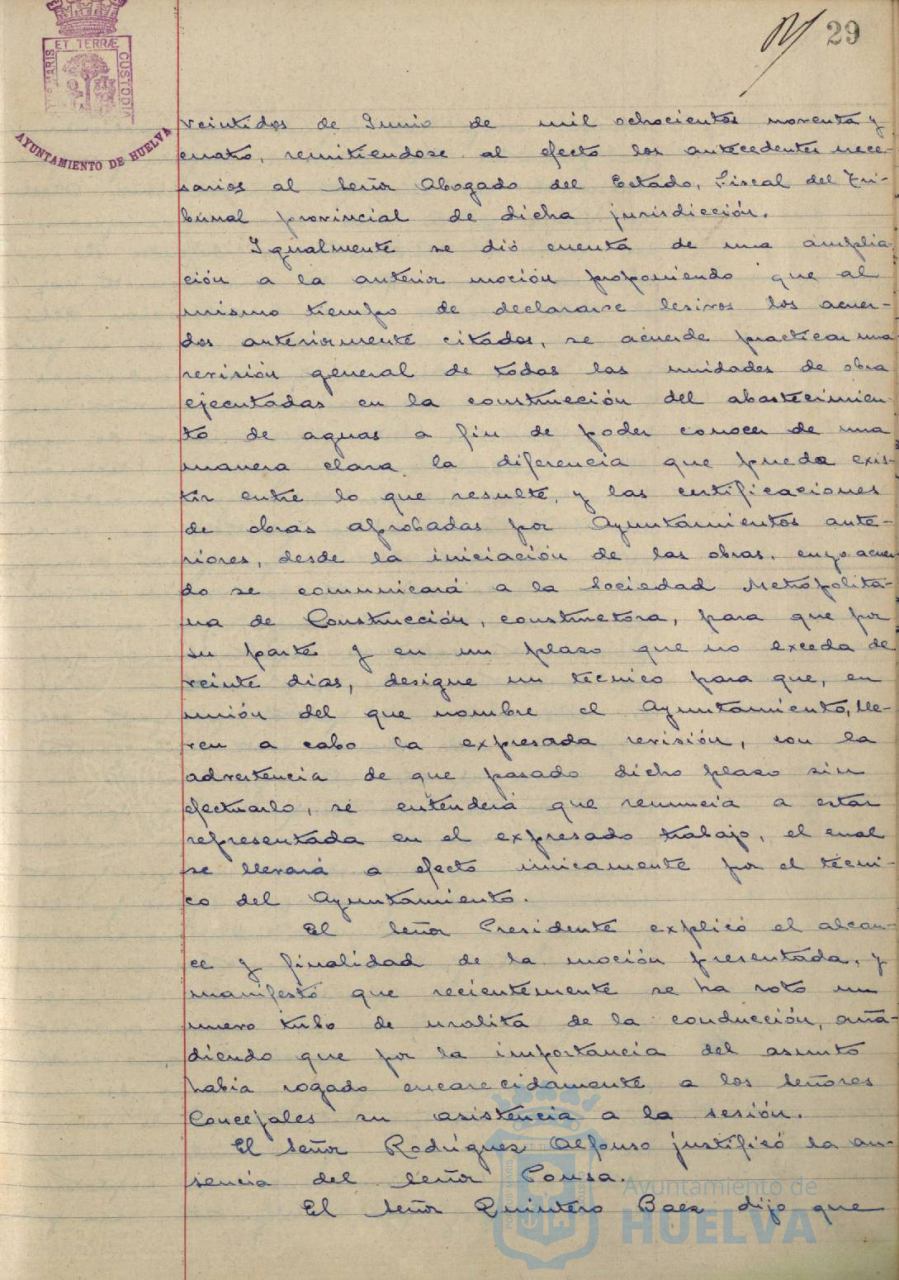 29
PORTUS MARIS ET TERRÆ CUSTODIA
AYUNTAMIENTO DE HUELVA
veintidos de Junio de mil ochocientos noventa y
cuatro, remitiendose al efecto los antecedentes nece-
sarios al Señor Abogado del Estado, Fiscal del Tri-
bunal provincial de dicha jurisdicción.
Igualmente se dió cuenta de una amplia-
ción a la anterior moción proponiendo que al
mismo tiempo de declararse lesivos los acuer-
dos anteriormente citados, se acuerde practicar una
revisión general de todas las unidades de obra
ejecutadas en la construcción del abastecimien-
to de aguas a fin de poder conocer de una
manera clara la diferencia que pueda exis-
tir entre lo que resulte, y las certificaciones
de obras aprobadas por Ayuntamientos ante-
riores, desde la iniciación de las obras. cuyo acuer-
do se comunicará a la Sociedad Metropolita-
na de Construcción, constructora, para que por
su parte y en un plaso que no exceda de
veinte dias, designe un técnico para que, en
unión del que nombre el Ayuntamiento, lle-
ven a cabo la expresada revisión, con la
advertencia de que pasado dicho plaso sin
efectuarlo, se entenderá que renuncia a estar
representada en el expresado trabajo, el cual
se llevará a efecto únicamente por el técni-
co del Ayuntamiento.
El Señor Presidente explicó el alcan-
ce y finalidad de la moción presentada, y
manifestó que recientemente se ha roto un
nuevo tubo de uralita de la conducción, aña-
diendo que por la importancia del asunto
había rogado encarecidamente a los Señores
Concejales su asistencia a la sesión.
El Señor Rodríguez Alfonso justificó la au-
sencia del Señor Ponsa.
El Señor Quintero Baez dijo que
Ayuntamiento de
HUELVA